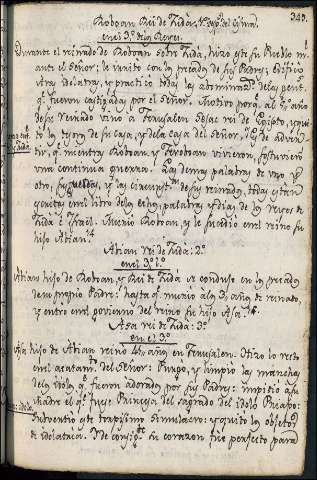 343.
Roboan Rei de Judá, 1º
en el 3º de los Reyes.
Durante el reinado de Roboan sobre Judá, hizo este su Pueblo mal
ante el Señor; le irritó con los pecados de sus Padres; Edificó
idolatras, y practicó todas las abominaz.s de las gent.s
q.e fueron castigadas por el Señor. Motivo porq. al 5º año
de su reinado vino a Jerusalen Sesac rei de Egipto, y quitó
los tesoros de su casa, y de la casa del Señor. Es de adver-
tir, q.e mientras Roboan, y Jeroboan vivieron, sostuvieron
una continua guerra. Las demas palabras de uno y
otro, y las de su reinado, todas estan
escritas en el libro de los echos, palabras, y dias de los reyes de
Judá e Israel. Murió Roboan, y le sucedió en el reino su
hijo Abian.
Abian rei de Judá: 2º
en el 3º
Abian hijo de Roboan, y Rei de Judá se condujo en los pecados
de su propio Padre: hasta q.e murió al 3º año de reinado,
y entró en el govierno del reino su hijo Asa.
Asa rei de Judá: 3º
en el 3º
Asa hijo de Abian reinó 41 años en Jerusalen. Hizo lo recto
en el acatam.to del Señor: Purgó, y limpió las manchas
de los idolos q.e fueron adorados por sus Padres: impidió a su
Madre el q.e fuese Princesa del sagrado del idolo Priapo:
Subvertió este torpisimo Simulacro: y quitó los objetos
de idolatria. Y de consig.te su corazon fue perfecto para